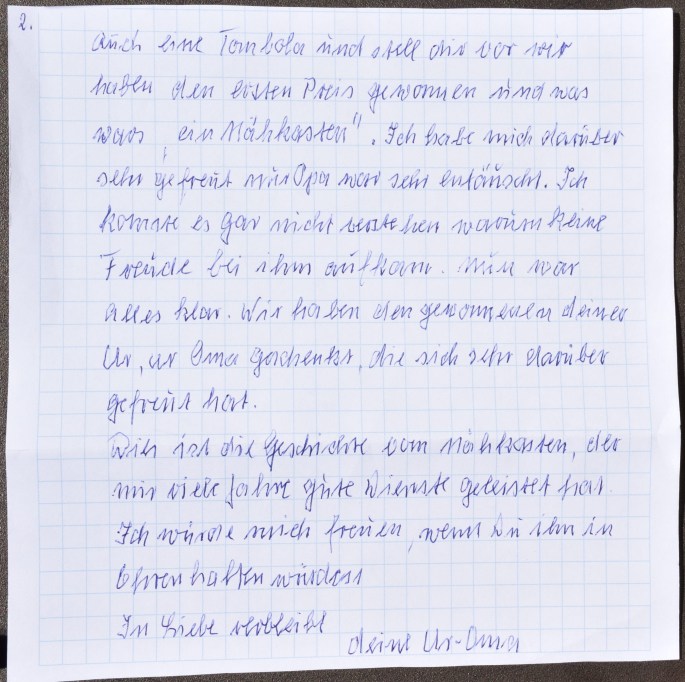 2.
auch eine Tombola und stell dir vor wir
haben den ersten Preis gewonnen und was
wars „ein Nähkasten". Ich habe mich darüber
sehr gefreut nur Opa war sehr entäuscht. Ich
konnte es gar nicht verstehen warum keine
Freude bei ihm aufkam. Nun war
alles klar. Wir haben den gewonnenen deiner
Ur, ur Oma geschenkt, die sich sehr darüber
gefreut hat.
Dies ist die Geschichte vom Nähkasten, der
mir viele Jahre gute Dienste geleistet hat.
Ich würde mich freuen, wenn Du ihm in
Ehren halten würdest
In Liebe verbleibt
deine Ur-Oma